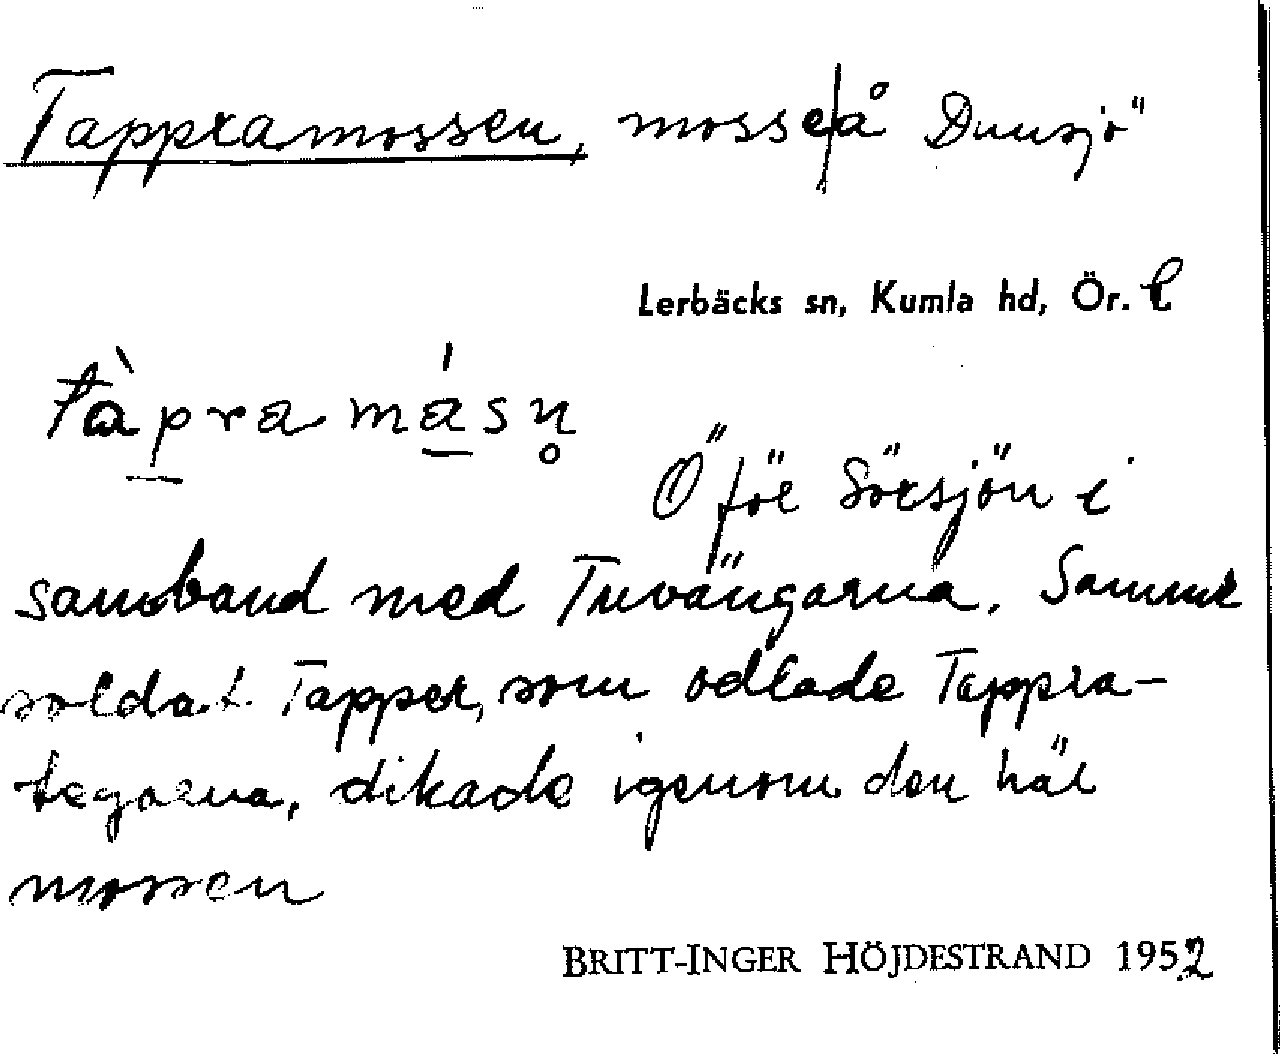 Tappramossen, mosse på Dunsjö
Lerbäcks sn, Kumla hd, Ör. l
tàpra másn̥
Ö för Sörsjön i
samband med Tuvängarna. Samme
soldat Tapper, som odlade Tappra-
tegarna, dikade igenom den här
mossen
BRITT-INGER HÖJDESTRAND 1952